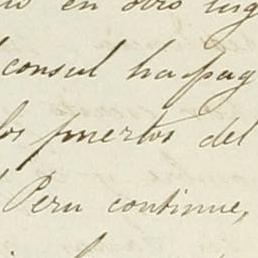 en otro lug
consul ha pag
los puertos del
Peru continue,